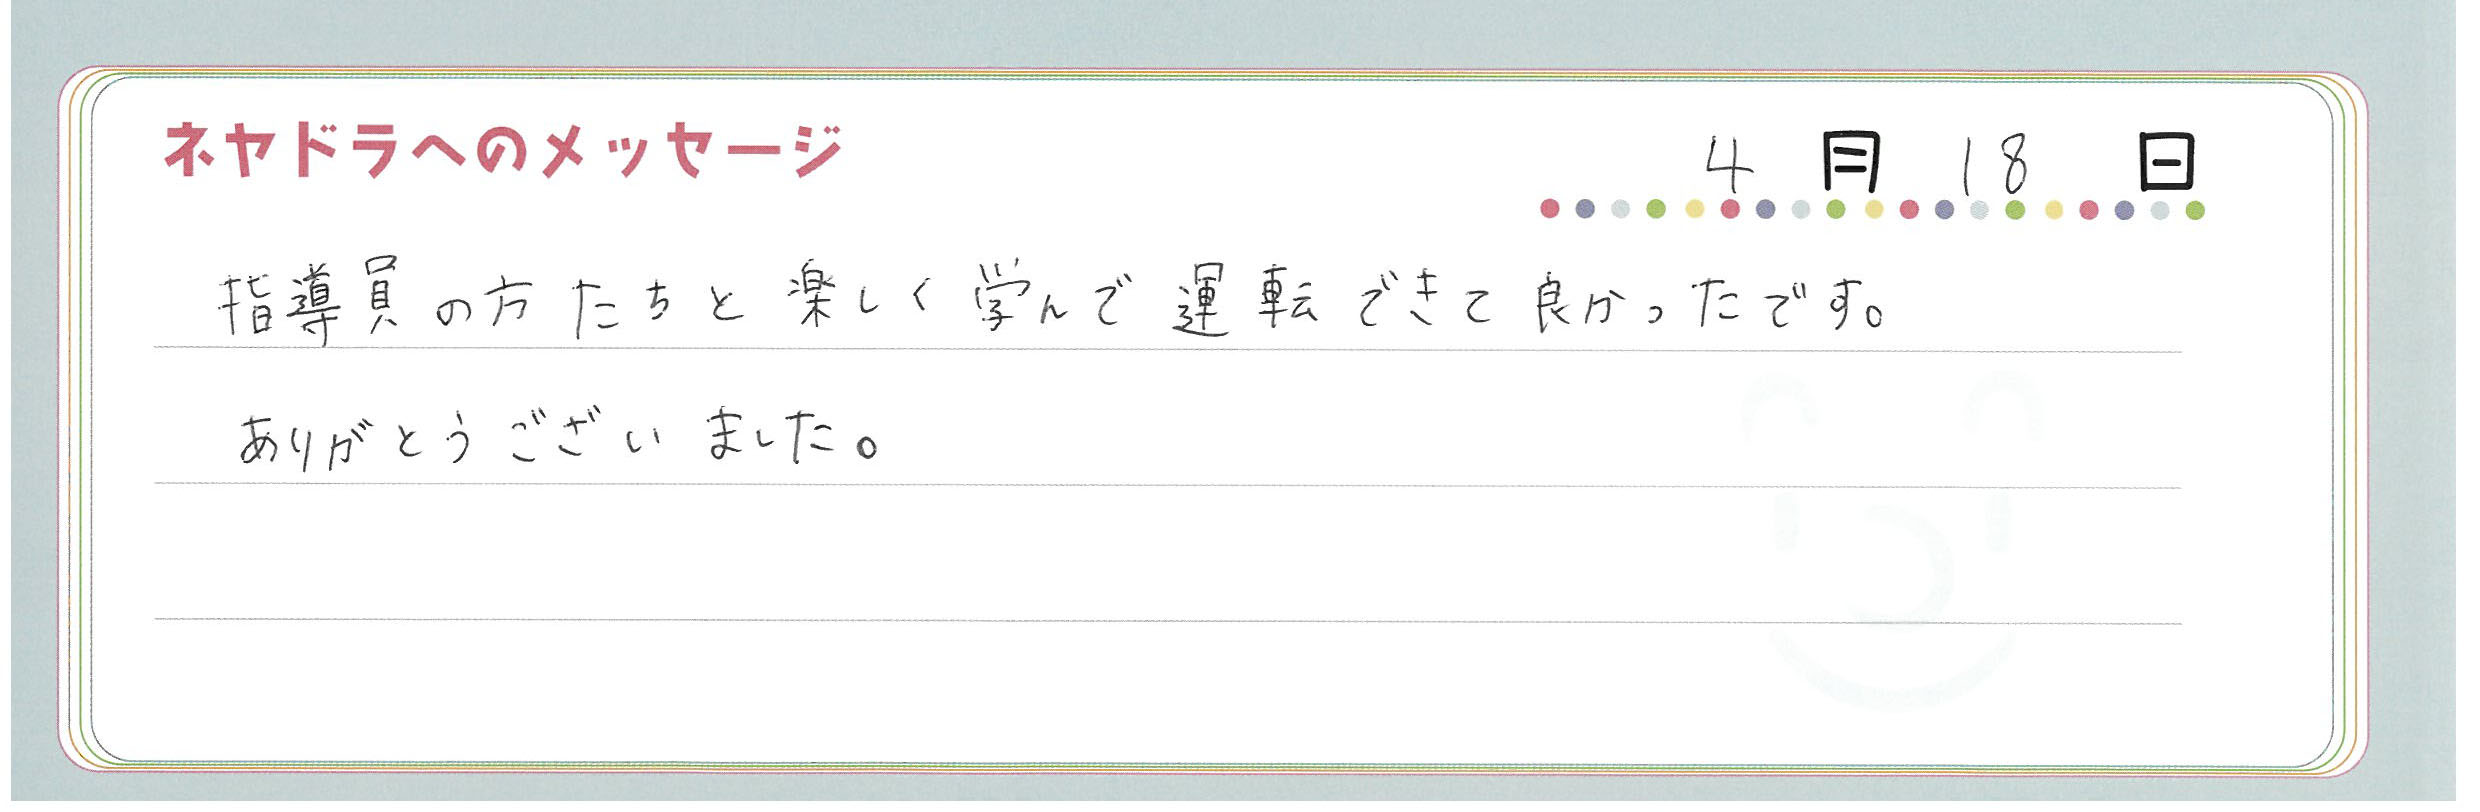 ネヤドラへのメッセージ
4月18日
指導員の方たちと楽しく学んで運転できて良かったです。
ありがとうございました。